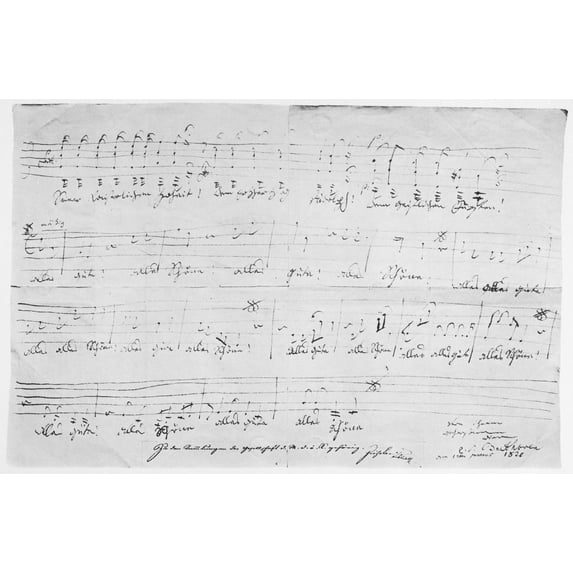 Seiner Kaiserlichen Hoheit! Dem Erzherzog Rudolph! Dem geistlichen Fürsten!
alles Gute! alles Schöne! alles Gute! alles Schöne! alles alles Gute
alles alles Schöne! alles Gute alles Schöne! alles Gute! alles Schöne alles alles Gute alles Schöne!
alles Gute! alles Schöne alles Gute alles Schöne
von ihrem gehorsamsten Diener
L. v. Beethoven
am 1ten Jenner 1820